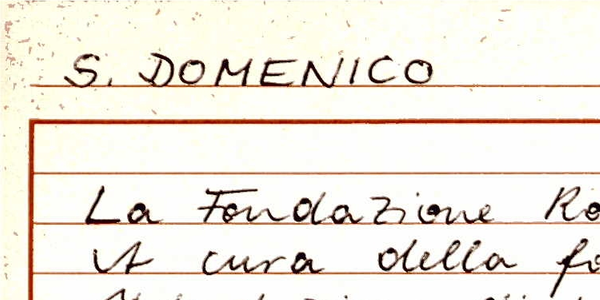 S. DOMENICO
La Fondazione
A cura della